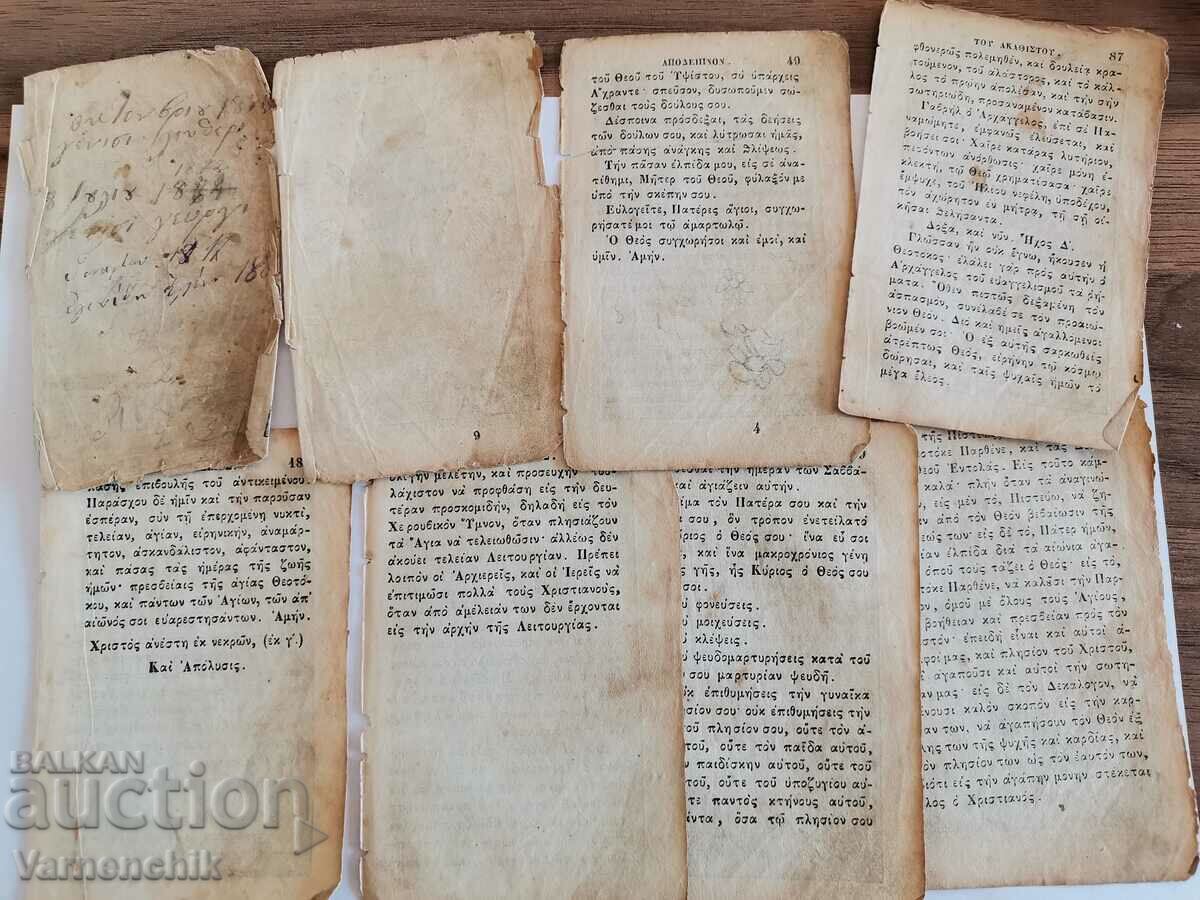 8 Ιουλίου 18
9
ΑΠΟΔΕΙΠΝΟΝ. 49
τοῦ Θεοῦ τοῦ Ὑψίστου, σὺ ὑπάρχεις
Ἄχραντε· σπεῦσον, δυσωποῦμεν σώ-
ζεσθαι τοὺς δούλους σου.
Δέσποινα πρόσδεξαι, τὰς δεήσεις
τῶν δούλων σου, καὶ λύτρωσαι ἡμᾶς,
ἀπὸ πάσης ἀνάγκης καὶ θλίψεως.
Τὴν πᾶσαν ἐλπίδα μου, εἰς σὲ ἀνα-
τίθημι, Μῆτερ τοῦ Θεοῦ, φύλαξόν με
ὑπὸ τὴν σκέπην σου.
Εὐλογεῖτε, Πατέρες ἅγιοι, συγχω-
ρήσατέ μοι τῷ ἁμαρτωλῷ.
Ὁ Θεὸς συγχωρῆσοι καὶ ἐμοὶ, καὶ
ὑμῖν. Ἀμήν.
4
ΤΟΥ ΑΚΑΘΙΣΤΟΥ. 87
φθονερῶς πολεμηθὲν, καὶ δουλείᾳ κρα-
τούμενον, τοῦ ἀλάστορος, καὶ τὸ κάλ-
λος τὸ πρώην ἀπολέσαν, καὶ τὴν σὴν
σωτηριώδη, προσαναμένον κατάβασιν.
Γαβριὴλ ὁ Ἀρχάγγελος, ἐπὶ σὲ Πα-
ναμώμητε, ἐμφανῶς ἐλεύσεται, καὶ
βοήσει σοι· Χαῖρε κατάρας λυτήριον,
πεσόντων ἀνόρθωσις· χαῖρε μόνη ἐ-
κλεκτὴ, τῷ Θεῷ χρηματίσασα· χαῖρε
ἔμψυχε, τοῦ Ἡλίου νεφέλη, ὑποδέχου,
τὸν ἀχώρητον ἐν μήτρᾳ, τῇ σῇ οἰ-
κῆσαι θελήσαντα.
Δόξα, καὶ νῦν. Ἦχος Δ΄.
Γλῶσσαν ἣν οὐκ ἔγνω, ἤκουσεν ἡ
Θεοτόκος· ἐλάλει γὰρ πρὸς αὐτὴν ὁ
Ἀρχάγγελος τοῦ εὐαγγελισμοῦ τὰ ῥή-
ματα. Ὅθεν πιστῶς δεξαμένη τὸν
ἀσπασμὸν, συνέλαβέ σε τὸν προαιώ-
νιον Θεόν. Διὸ καὶ ἡμεῖς ἀγαλλόμενοι
βοῶμέν σοι· Ὁ ἐξ αὐτῆς σαρκωθεὶς
ἀτρέπτως Θεὸς, εἰρήνην τῷ κόσμῳ
δώρησαι, καὶ ταῖς ψυχαῖς ἡμῶν τὸ
μέγα ἔλεος.
18
πάσης ἐπιβουλῆς τοῦ ἀντικειμένου.
Παράσχου δὲ ἡμῖν καὶ τὴν παροῦσαν
ἑσπέραν, σὺν τῇ ἐπερχομένῃ νυκτὶ,
τελείαν, ἁγίαν, εἰρηνικὴν, ἀναμάρ-
τητον, ἀσκανδάλιστον, ἀφάνταστον,
καὶ πάσας τὰς ἡμέρας τῆς ζωῆς
ἡμῶν· πρεσβείαις τῆς ἁγίας Θεοτό-
κου, καὶ πάντων τῶν Ἁγίων, τῶν ἀπ᾿
αἰῶνός σοι εὐαρεστησάντων. Ἀμήν.
Χριστὸς ἀνέστη ἐκ νεκρῶν, (ἐκ γ΄.)
Καὶ Ἀπόλυσις.
ὀλίγην μελέτην, καὶ προσευχὴν
λάχιστον νὰ προφθάσῃ εἰς τὴν δευ-
τέραν προσκομιδὴν, δηλαδὴ εἰς τὸν
Χερουβικὸν Ὕμνον, ὅταν πλησιάζουν
τὰ Ἅγια νὰ τελειωθῶσιν· ἀλλέως δὲν
ἀκούει τελείαν Λειτουργίαν. Πρέπει
λοιπὸν οἱ Ἀρχιερεῖς, καὶ οἱ Ἱερεῖς νὰ
ἐπιτιμῶσι πολλὰ τοὺς Χριστιανοὺς,
ὅταν ἀπὸ ἀμέλειάν των δὲν ἔρχονται
εἰς τὴν ἀρχὴν τῆς Λειτουργίας.
τὴν ἡμέραν τῶν Σαββά-
καὶ ἁγιάζειν αὐτήν.
ίμα τὸν Πατέρα σου καὶ τὴν
σου, ὃν τρόπον ἐνετείλατό
ύριος ὁ Θεός σου· ἵνα εὖ σοι
, καὶ ἵνα μακροχρόνιος γένῃ
ς γῆς, ἧς Κύριος ὁ Θεός σου
σοι.
ὐ φονεύσεις.
ὐ μοιχεύσεις.
ὐ κλέψεις.
ὐ ψευδομαρτυρήσεις κατὰ τοῦ
σου μαρτυρίαν ψευδῆ.
ὐκ ἐπιθυμήσεις τὴν γυναῖκα
σίον σου· οὐκ ἐπιθυμήσεις τὴν
τοῦ πλησίον σου, οὔτε τὸν ἀ-
τοῦ, οὔτε τὸν παῖδα αὐτοῦ,
ν παιδίσκην αὐτοῦ, οὔτε τοῦ
τοῦ, οὔτε τοῦ ὑποζυγίου αὐ-
τε παντὸς κτήνους αὐτοῦ,
άντα, ὅσα τῷ πλησίον σου
τῆς Πίστεως
τόκε Παρθένε, καὶ τὰς
Θεοῦ Ἐντολάς. Εἰς τοῦτο κάμ-
καλά· πλὴν ὅταν τὰ ἀναγινώ-
εἰς μὲν τὸ, Πιστεύω, νὰ ζη-
ν ἀπὸ τὸν Θεὸν βεβαίωσιν τῆς
εώς των· εἰς δὲ τὸ, Πάτερ ἡμῶν,
ν ἐλπίδα διὰ τὰ αἰώνια ἀγα-
ὁποῦ τοὺς τάζει ὁ Θεός· εἰς τὸ,
τόκε Παρθένε, νὰ καλέσῃ τὴν Παρ-
ον, ὁμοῦ μὲ ὅλους τοὺς Ἁγίους,
βοήθειαν καὶ πρεσβείαν πρὸς τὸν
στόν· ἐπειδὴ εἶναι καὶ αὐτοὶ ἀ-
φοί μας, καὶ πλησίον τοῦ Χριστοῦ,
ἀγαποῦσι καὶ αὐτοὶ τὴν σωτη-
αν μας· εἰς δὲ τὸν Δεκάλογον, νὰ
νουσι καλὸν σκοπὸν εἰς τὴν καρ-
αν των, νὰ ἀγαπήσουν τὸν Θεὸν ἐξ
λης των τῆς ψυχῆς καὶ καρδίας, καὶ
τὸν πλησίον των ὡς τὸν ἑαυτόν των,
ιότι εἰς τὴν ἀγάπην μόνην στέκεται
λος ὁ Χριστιανός.
BALKAN
auction
Varnenchik